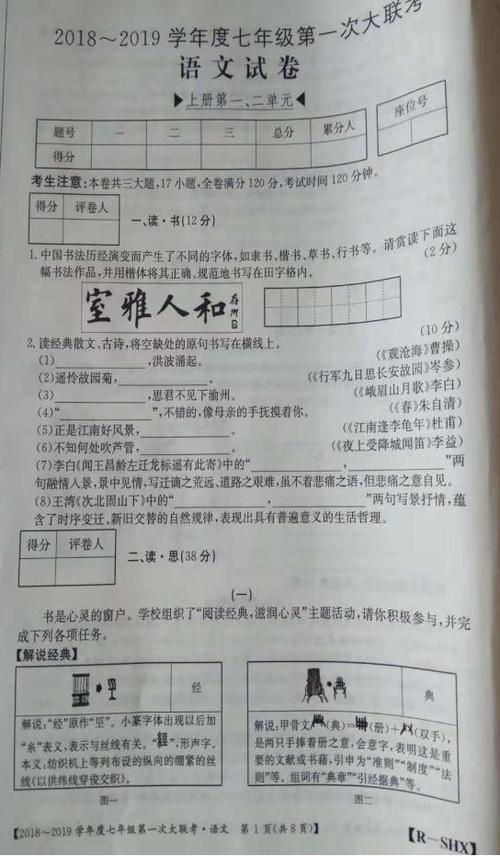 2018～2019 学年度七年级第一次大联考
语文试卷
▶上册第一、二单元◀
题号 一 二 三 总分 累分人 座位号
得分
考生注意:本卷共三大题,17小题,全卷满分120分,考试时间120分钟。
得分 评卷人
一、读·书(12分)
1.中国书法历经演变而产生了不同的字体,如隶书、楷书、草书、行书等。请赏读下面这
幅书法作品,并用楷体将其正确、规范地书写在田字格内。 (2分)
室雅人和
2.读经典散文、古诗,将空缺处的原句书写在横线上。 (10分)
(1)________,洪波涌起。 (《观沧海》曹操)
(2)遥怜故园菊,________。 (《行军九日思长安故园》岑参)
(3)________,思君不见下渝州。 (《峨眉山月歌》李白)
(4)“________”,不错的,像母亲的手抚摸着你。 (《春》朱自清)
(5)正是江南好风景,________。 (《江南逢李龟年》杜甫)
(6)不知何处吹芦管,________。 (《夜上受降城闻笛》李益)
(7)李白《闻王昌龄左迁龙标遥有此寄》中的“________,________”两
句融情入景,景中见情,写迁谪之荒远、道路之艰难,虽不着悲痛之语,但悲痛之意自见。
(8)王湾《次北固山下》中的“________,________”两句写景抒情,蕴
含了时序变迁、新旧交替的自然规律,表现出具有普遍意义的生活哲理。
得分 评卷人
二、读·思(38分)
(一)
书是心灵的窗户。学校组织了“阅读经典,滋润心灵”主题活动,请你积极参与,并完
成下列各项任务。
【解说经典】
经
解说:“经”原作“坙”。小篆字体出现以后加
“糸”表义,表示与丝线有关。“經”,形声字。
本义:纺织机上等列布设的纵向的绷紧的丝
线(以供纬线穿俊交织)。
图一
典
解说:甲骨文(典)=(册)+(双手),
是两只手捧着册之意,会意字,表明这是重
要的文献或书籍,引申为“准则”“制度”“法
则”等。组词有“典章”“引经据典”等。
图二
【2018～2019学年度七年级第一次大联考·语文 第1页(共8页)】
【R－SHX】